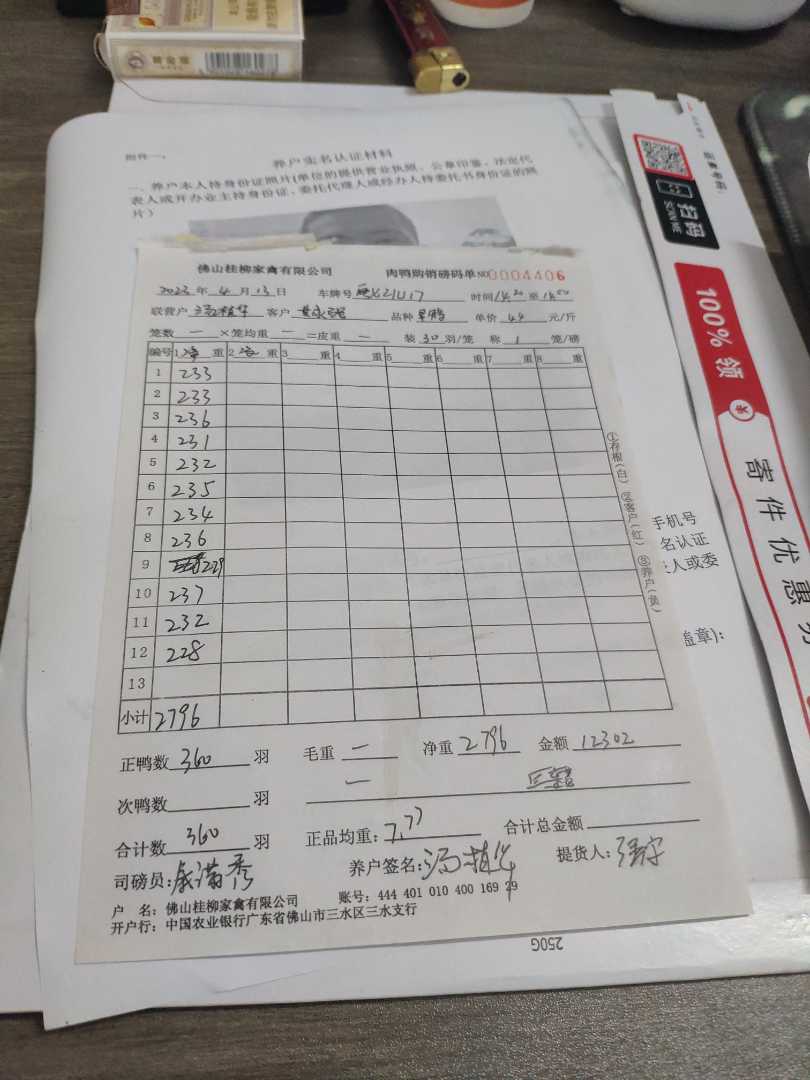 黄金叶
附件一：
养户实名认证材料
一、养户本人持身份证照片(单位的提供营业执照、公章印鉴、法定代
表人或开办业主持身份证、委托代理人或经办人持委托书身份证的照
片)
扫码
SCAN ME
100% 领
寄件优惠
佛山桂柳家禽有限公司 肉鸭购销磅码单 NO 0004406
2023 年 4 月 13 日 车牌号 时间 至
联营户 客户 品种 单价 4.4 元/斤
笼数 一 ×笼均重 一 =皮重 一 装 30 羽/笼 称 1 笼/磅
编号 1 净 重 2 重 3 重 4 重 5 重 6 重 7 重 8 重
1 233
2 233
3 236
4 231
5 232
6 235
7 234
8 236
9 229
10 237
11 232
12 228
13
小计 2796
①存根(白) ②客户(红) ③养户(黄)
正鸭数 360 羽 毛重 一 净重 2796 金额 12302
次鸭数 羽 一
合计数 360 羽 正品均重: 7.77 合计总金额
司磅员: 养户签名: 冯植华 提货人:
户 名: 佛山桂柳家禽有限公司 账号: 444 401 010 400 169 29
开户行: 中国农业银行广东省佛山市三水区三水支行
手机号
名认证
人或委
盖章):
250G